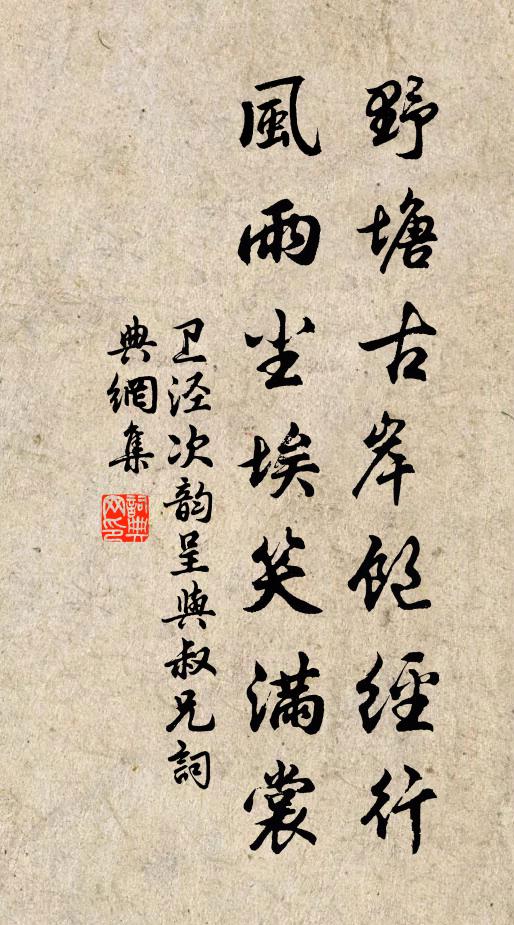 野塘古岸飽經行
風雨尘埃笑滿裳
卫泾次韵呈與叔兄詞
典網集
詞典
网印